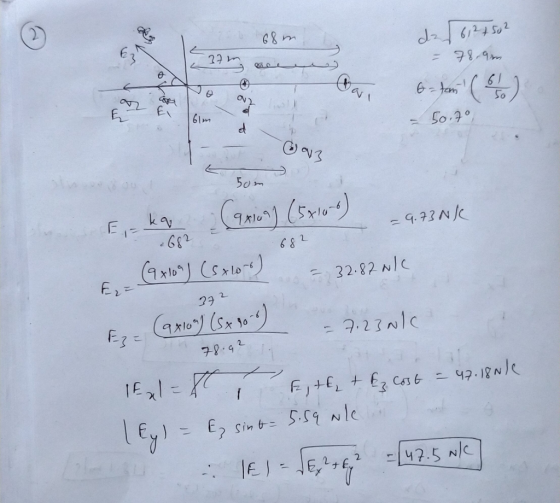 2
68 m
37 m
E3
θ
θ
q2
q1
E2
E1
61m
d
q3
50m
d = √61² + 50²
= 78.9m
θ = tan⁻¹ (61/50)
= 50.7°
E1 = kq/.68² = (9×10⁹) (5×10⁻⁶)/68² = 9.73 N/C
E2 = (9×10⁹) (5×10⁻⁶)/37² = 32.82 N/C
E3 = (9×10⁹) (5×10⁻⁶)/78.9² = 7.23 N/C
|Ex| = E1 + E2 + E3 cosθ = 47.18 N/C
|Ey| = E3 sinθ = 5.59 N/C
∴ |E| = √Ex² + Ey² = 47.5 N/C